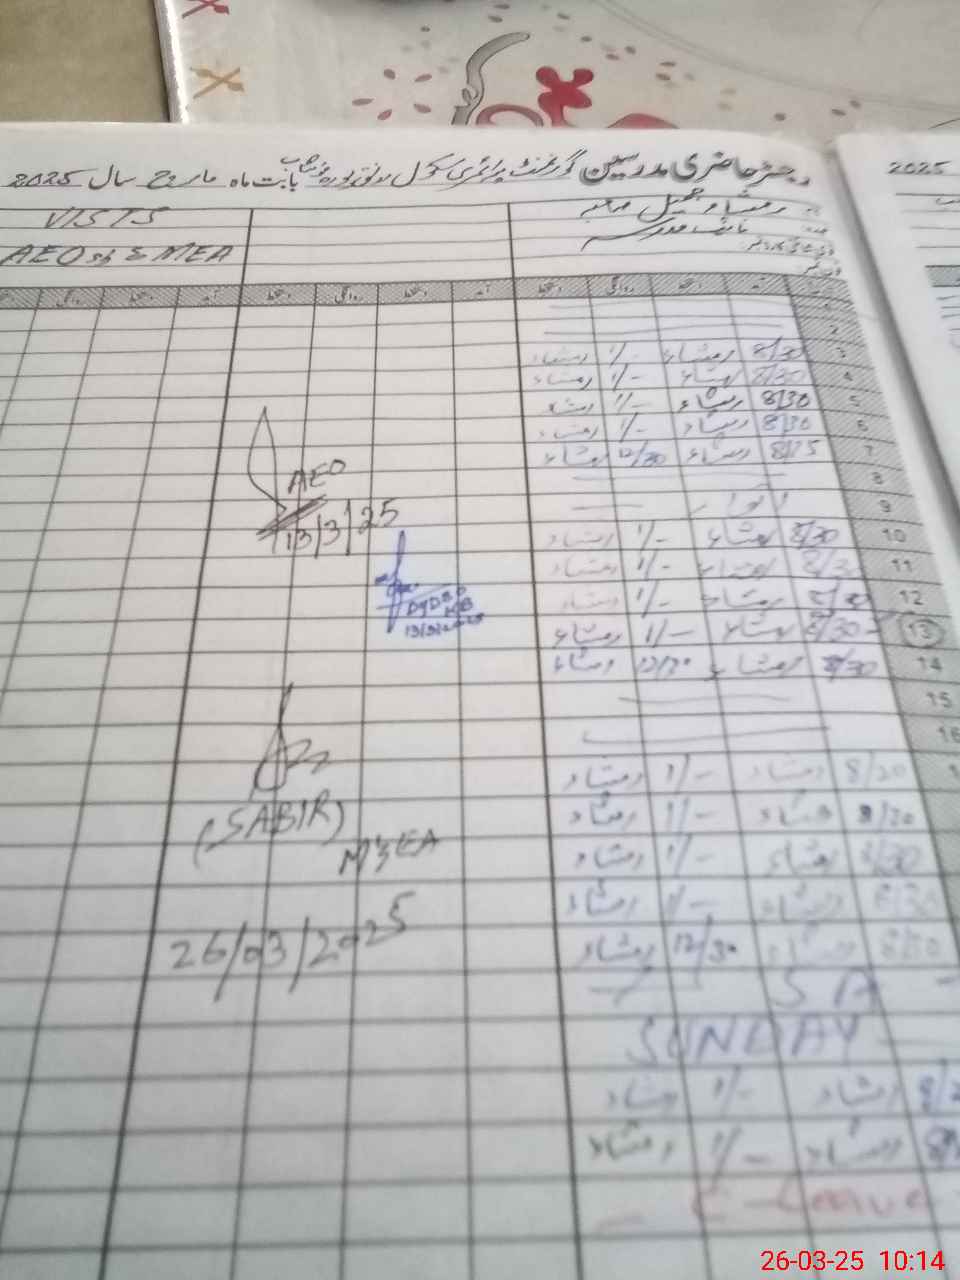 2025
رجسٹر حاضری مدرسین گورنمنٹ پرائمری سکول بابت ماہ مارچ سال 2025
رمشاء جمیل صاحبہ
VISTS
AEO sb & MEA
آمد دستخط روانگی دستخط آمد دستخط روانگی دستخط آمد دستخط
1
2
3 8/30 رمشاء 1/- رمشاء
4 8/30 رمشاء 1/- رمشاء
5 8/30 رمشاء 1/- رمشاء
6 8/30 رمشاء 1/- رمشاء
7 8/25 رمشاء 12/30 رمشاء
8
9 اتوار
10 8/30 رمشاء 1/- رمشاء
11 8/30 رمشاء 1/- رمشاء
12 8/30 رمشاء 1/- رمشاء
13 8/30 رمشاء 1/- رمشاء
14 8/30 رمشاء 12/30 رمشاء
15
16
8/30 رمشاء 1/- رمشاء
8/30 رمشاء 1/- رمشاء
8/30 رمشاء 1/- رمشاء
8/30 رمشاء 1/- رمشاء
8/30 رمشاء 12/30 رمشاء
SUNDAY
رمشاء 1/- رمشاء
رمشاء 1/- رمشاء
C-Leave
AEO
13/3/25
13/3/2025
(SABIR)
MEA
26/03/2025
26-03-25 10:14